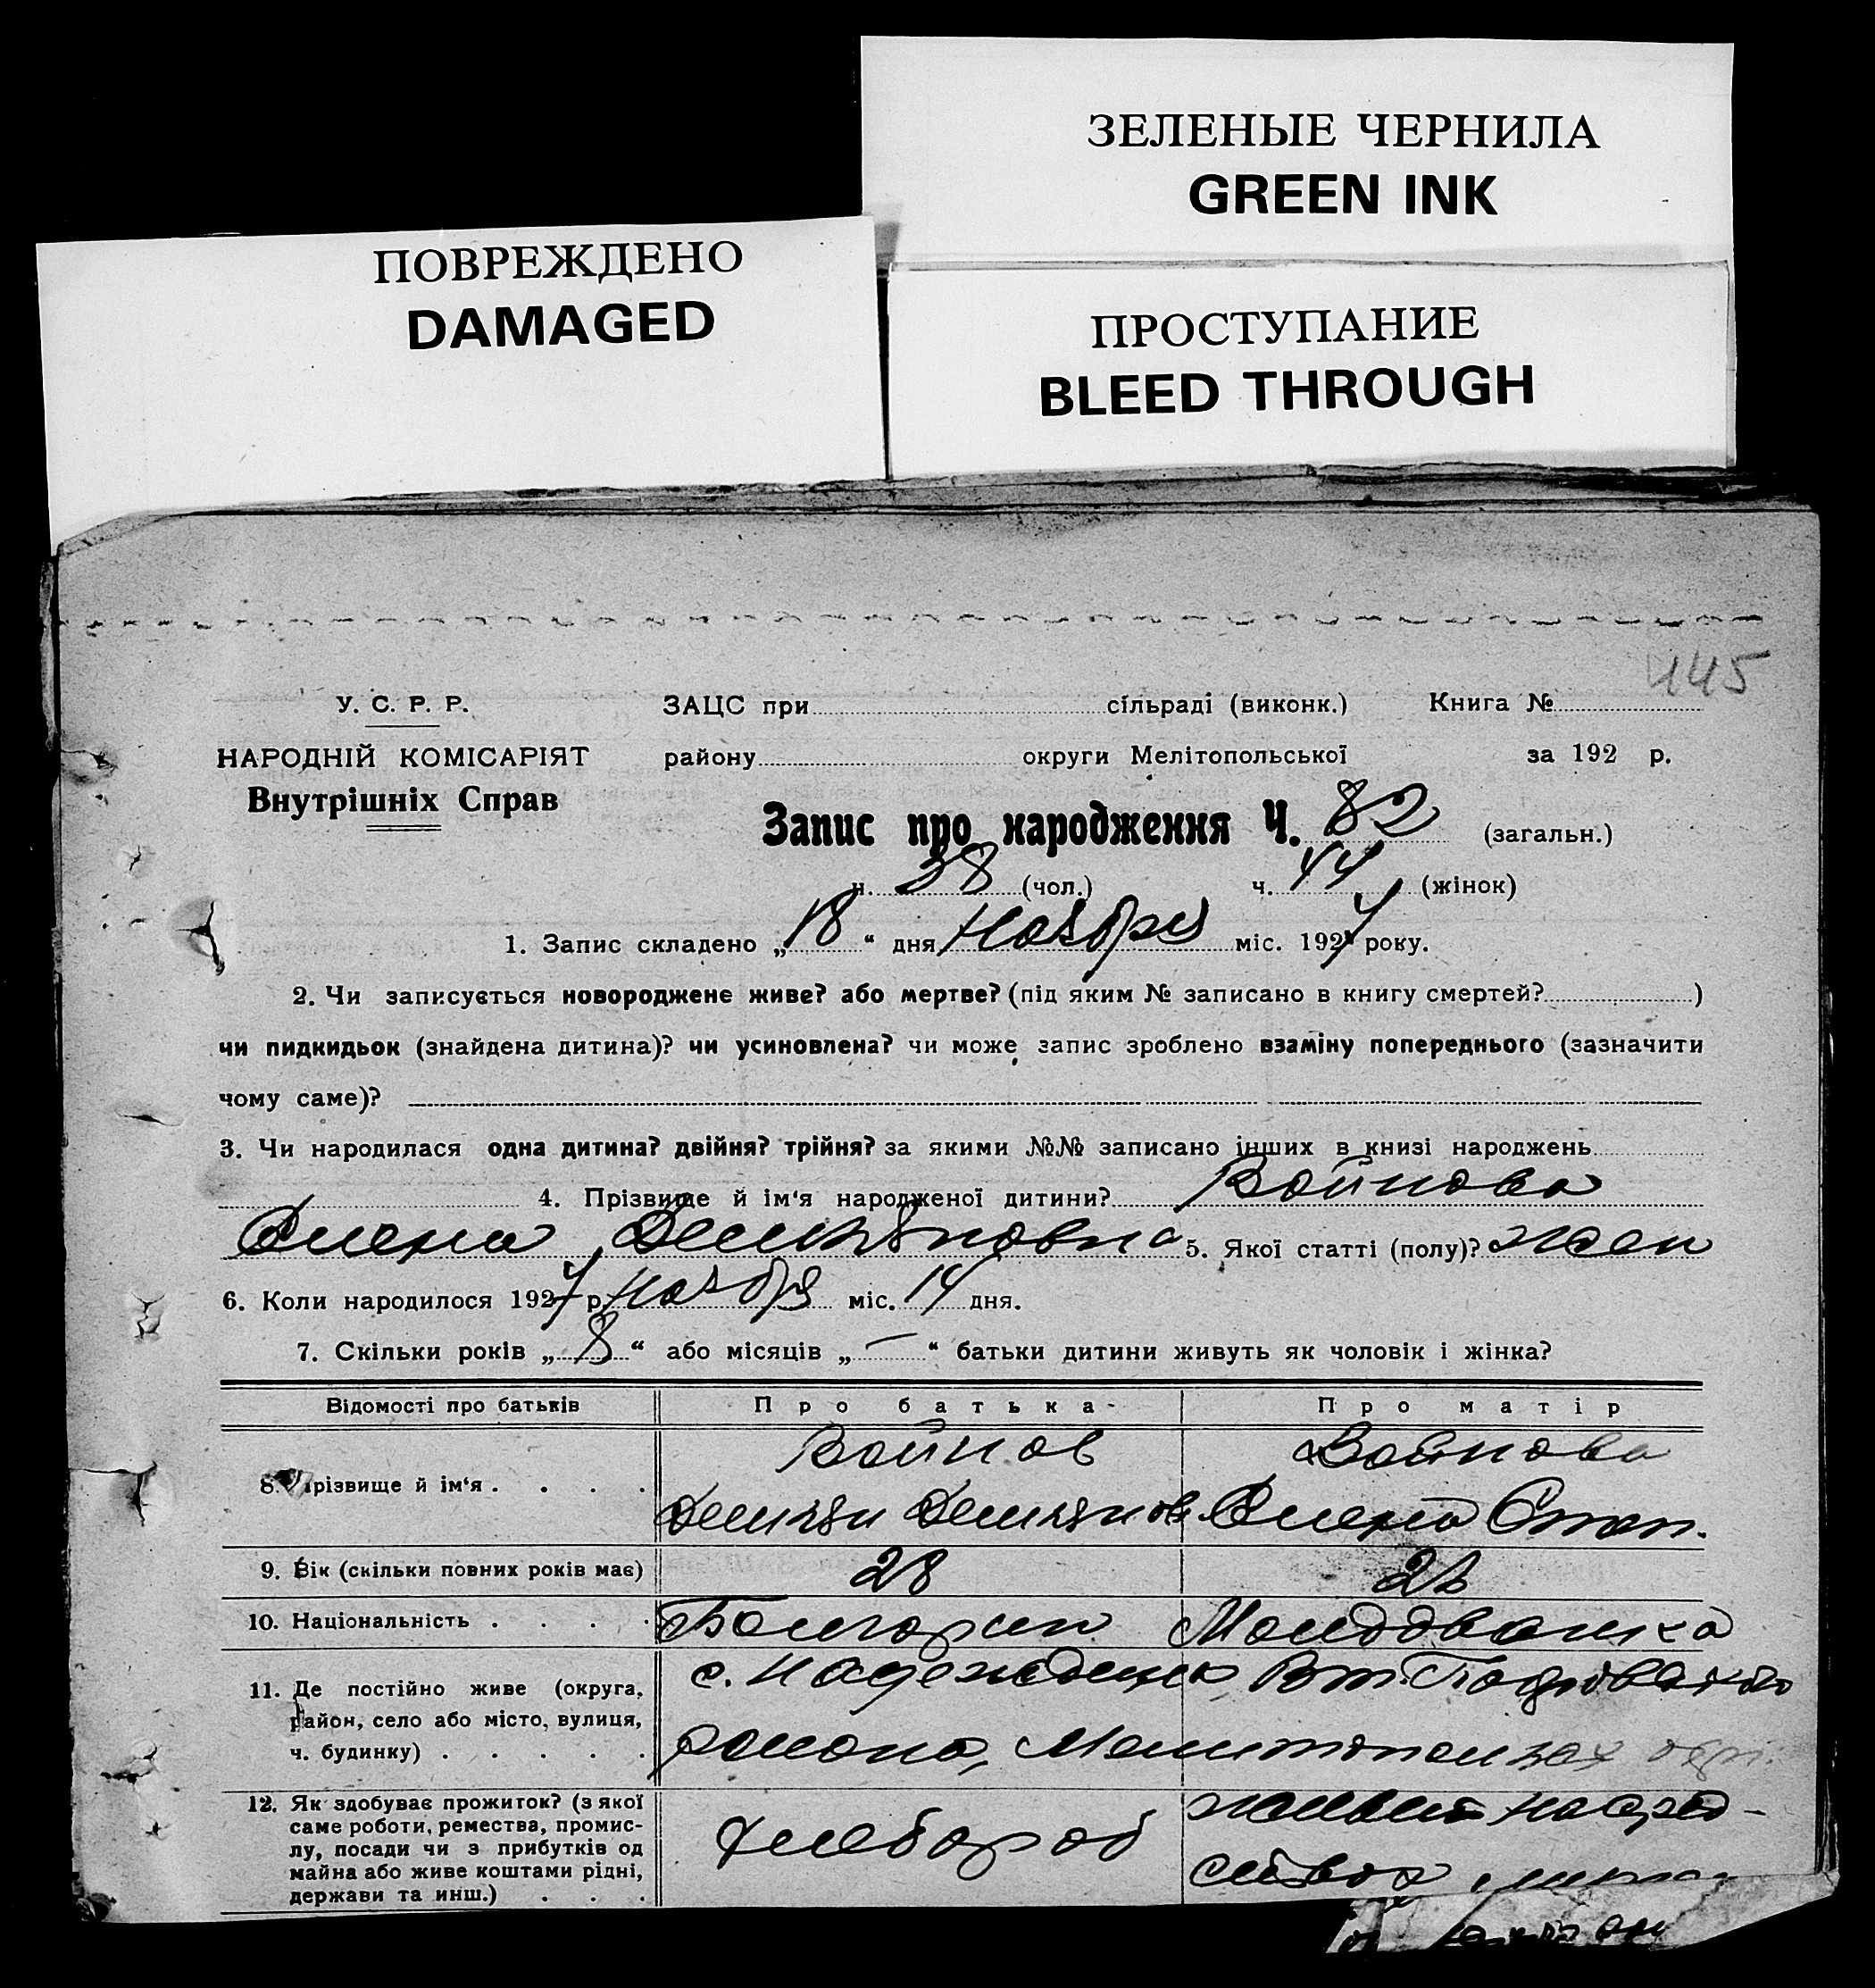 ЗЕЛЕНЫЕ ЧЕРНИЛА
GREEN INK
ПОВРЕЖДЕНО
DAMAGED
ПРОСТУПАНИЕ
BLEED THROUGH
445
У. С. Р. Р. ЗАЦС при сільраді (виконк.) Книга №
НАРОДНІЙ КОМІСАРІЯТ району округи Мелітопольської за 192 р.
Внутрішніх Справ
Запис про народження Ч. 82 (загальн.)
ч. 38 (чол.) ч. 44 (жінок)
1. Запис складено „18“ дня Ноября міс. 1927 року.
2. Чи записується новороджене живе? або мертве? (під яким № записано в книгу смертей? )
чи пидкидьок (знайдена дитина)? чи усиновлена? чи може запис зроблено взаміну попереднього (зазначити
чому саме)?
3. Чи народилася одна дитина? двійня? трійня? за якими №№ записано інших в книзі народжень
4. Прізвище й ім‘я народженої дитини? Войнова
Елена Демьяновна 5. Якої статті (полу)? жен
6. Коли народилося 1927 р. Ноября міс. 14 дня.
7. Скільки років „8“ або місяців „—“ батьки дитини живуть як чоловік і жінка?
Відомості про батьків Про батька Про матір
8. Прізвище й ім‘я . . . . Войнов Войнова
Демьян Демьянов Елена Степ.
9. Вік (скільки повних років має) 28
10. Національність . . . . Болгарин Молдованка
11. Де постійно живе (округа, с. Надеждино
район, село або місто, вулиця,
ч. будинку) . . . . . района, Мелитопольск окр.
12. Як здобуває прожиток? (з якої живет на сред-
саме роботи, ремества, промис-
лу, посади чи з прибутків од хлебороб
майна або живе коштами рідні, ствах
держави та инш.) . . .